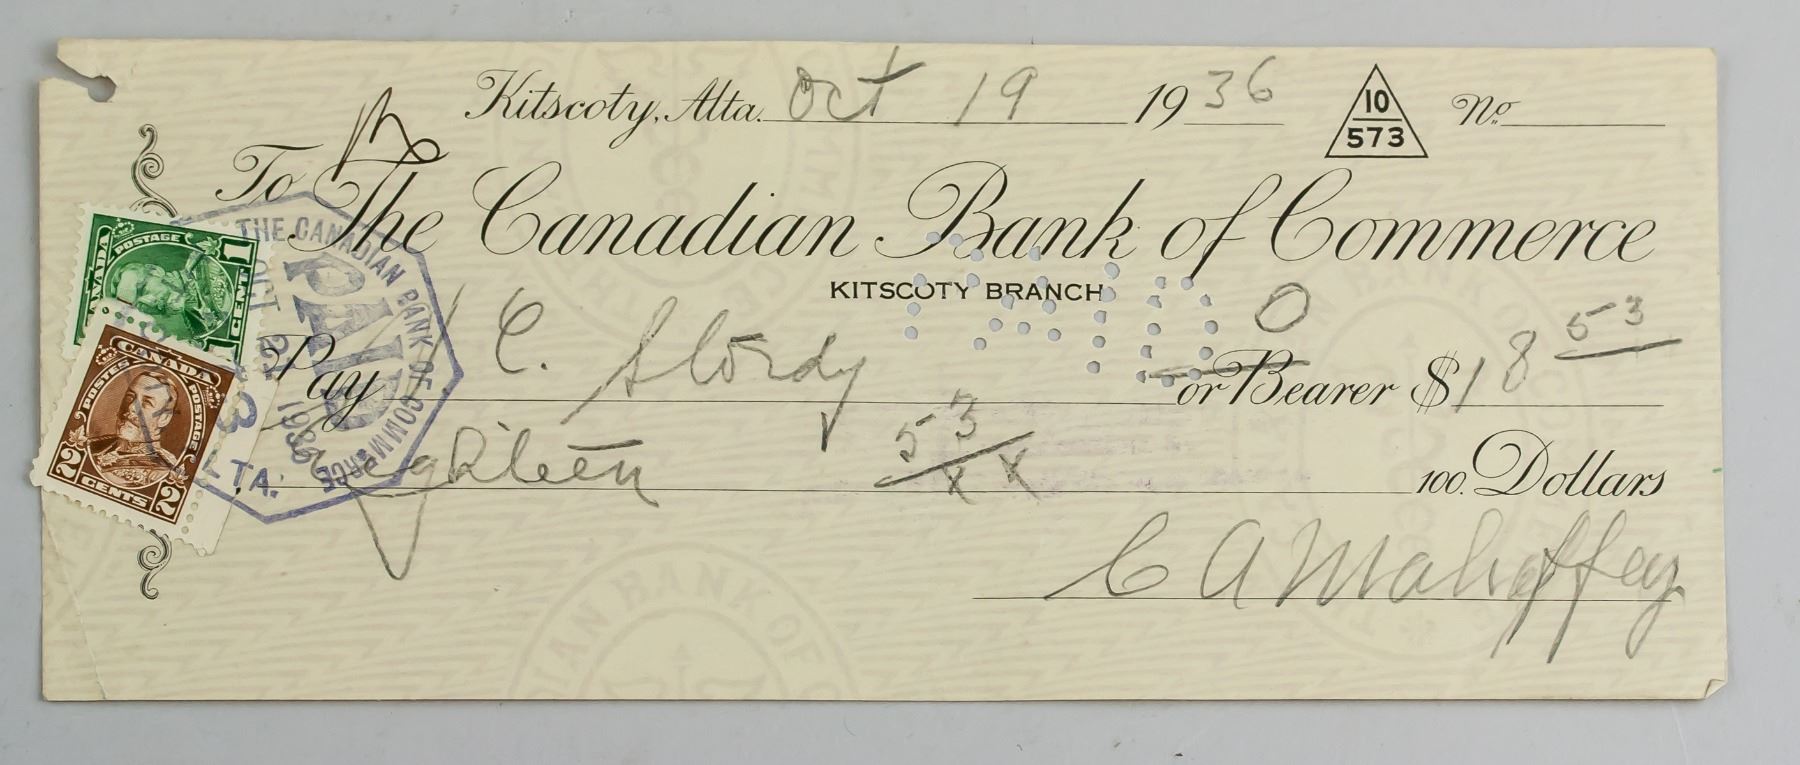 Kitscoty, Alta. Oct 19 1936
10
573
No.
To The Canadian Bank of Commerce
KITSCOTY BRANCH
PAID
Pay C. Stordy or Bearer $18 53
Eighteen 53/xx 100 Dollars
C A Mahaffey
THE CANADIAN BANK OF COMMERCE
PAID
OCT 1936
ALTA.
CANADA
POSTAGE
1 CENT 1
CANADA
POSTES POSTAGE
2 CENTS 2